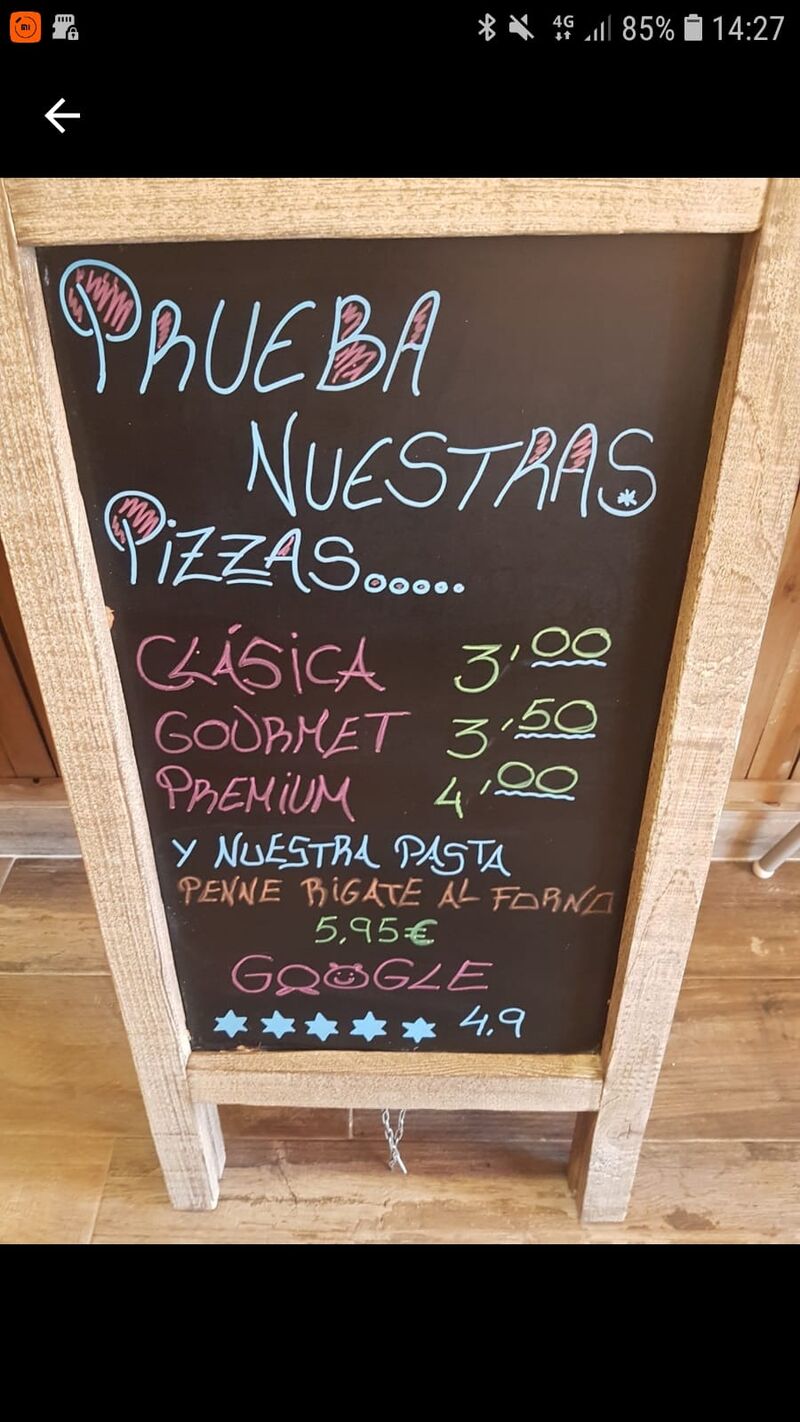 4G 85% 14:27
PRUEBA
NUESTRAS
PIZZAS.....
CLÁSICA 3'00
GOURMET 3'50
PREMIUM 4'00
Y NUESTRA PASTA
PENNE RIGATE AL FORNO
5,95€
GOOGLE
4,9